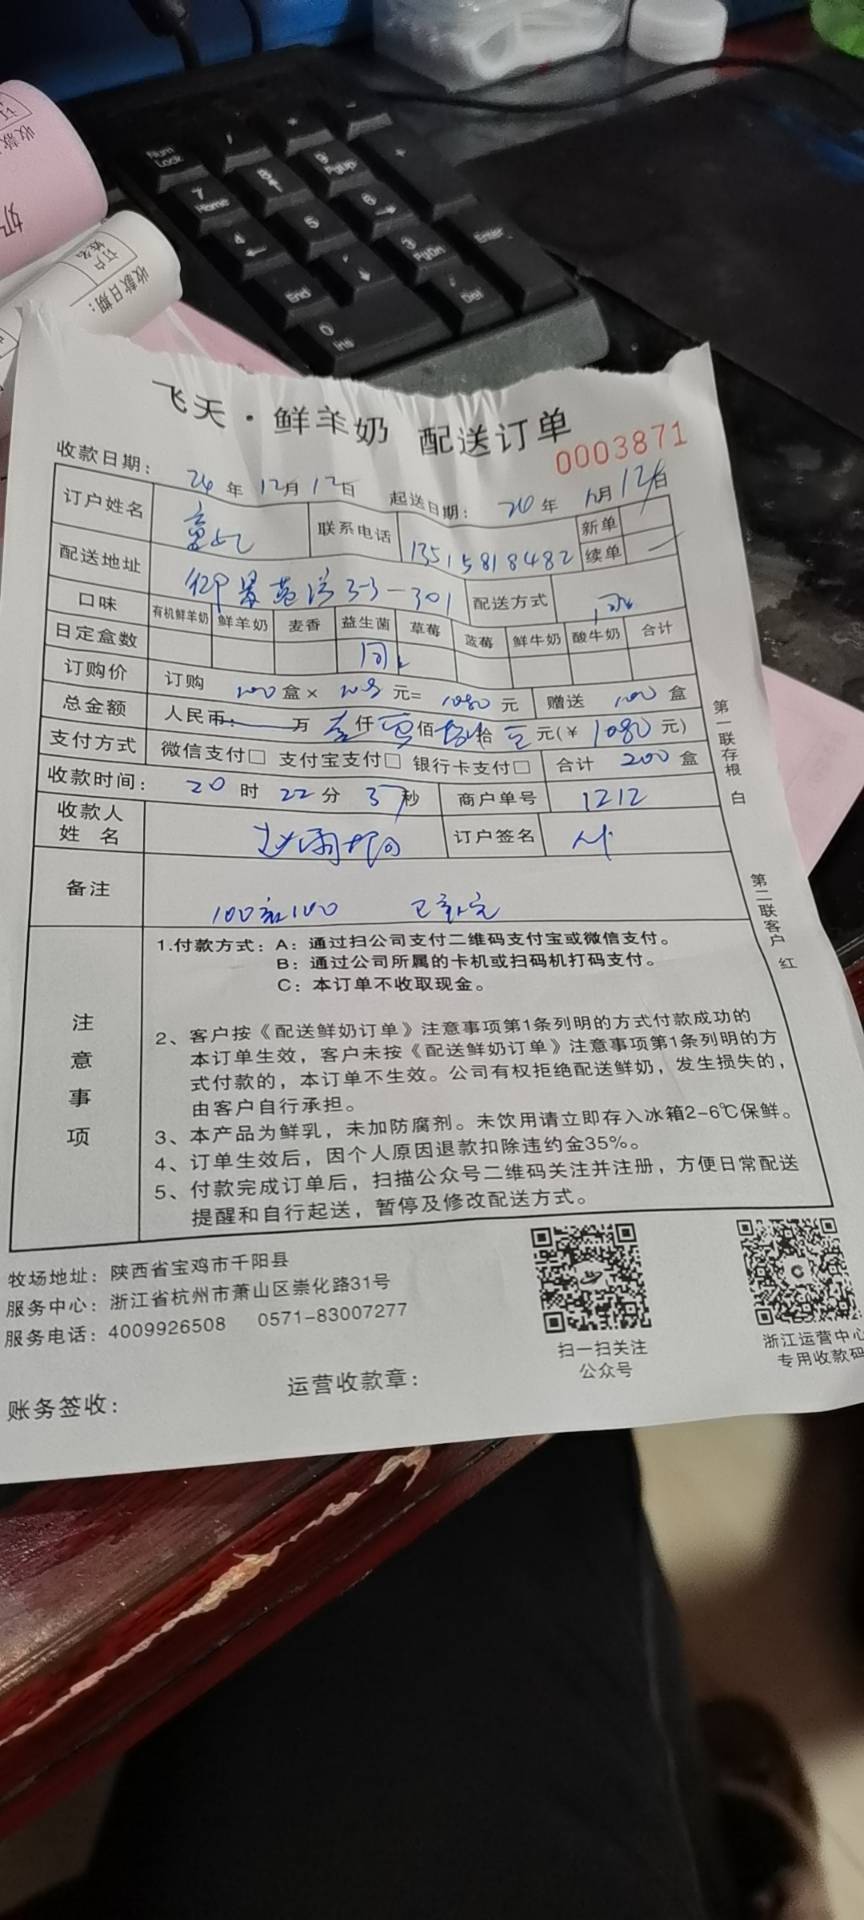 飞天·鲜羊奶 配送订单
0003871
收款日期： 24 年 12 月 12 日 起送日期： 年 月 12 日
订户姓名 童 联系电话 13515818482 新单
续单
配送地址 3-3-301 配送方式
口味 有机鲜羊奶 鲜羊奶 麦香 益生菌 草莓 蓝莓 鲜牛奶 酸牛奶 合计
日定盒数
订购价 订购 盒× 元= 1080 元 赠送 100 盒
总金额 人民币: 万 壹 仟 佰 捌 拾 元(￥ 1080 元)
支付方式 微信支付□ 支付宝支付□ 银行卡支付□ 合计 200 盒
收款时间： 20 时 22 分 37 秒 商户单号 1212
收款人姓名 订户签名
备注 100 100
注意事项
1.付款方式：A：通过扫公司支付二维码支付宝或微信支付。
B：通过公司所属的卡机或扫码机打码支付。
C：本订单不收取现金。
2、客户按《配送鲜奶订单》注意事项第1条列明的方式付款成功的
本订单生效，客户未按《配送鲜奶订单》注意事项第1条列明的方
式付款的，本订单不生效。公司有权拒绝配送鲜奶，发生损失的，
由客户自行承担。
3、本产品为鲜乳，未加防腐剂。未饮用请立即存入冰箱2-6℃保鲜。
4、订单生效后，因个人原因退款扣除违约金35%。
5、付款完成订单后，扫描公众号二维码关注并注册，方便日常配送
提醒和自行起送，暂停及修改配送方式。
第一联存根 白
第二联客户 红
牧场地址：陕西省宝鸡市千阳县
服务中心：浙江省杭州市萧山区崇化路31号
服务电话：4009926508 0571-83007277
扫一扫关注
公众号
浙江运营中心
专用收款码
账务签收：
运营收款章：
收款日期：
订户姓名
Num Lock
7 Home
8
9 PgUp
4
5
6
3 PgDn
End
Enter
0 Ins
Del